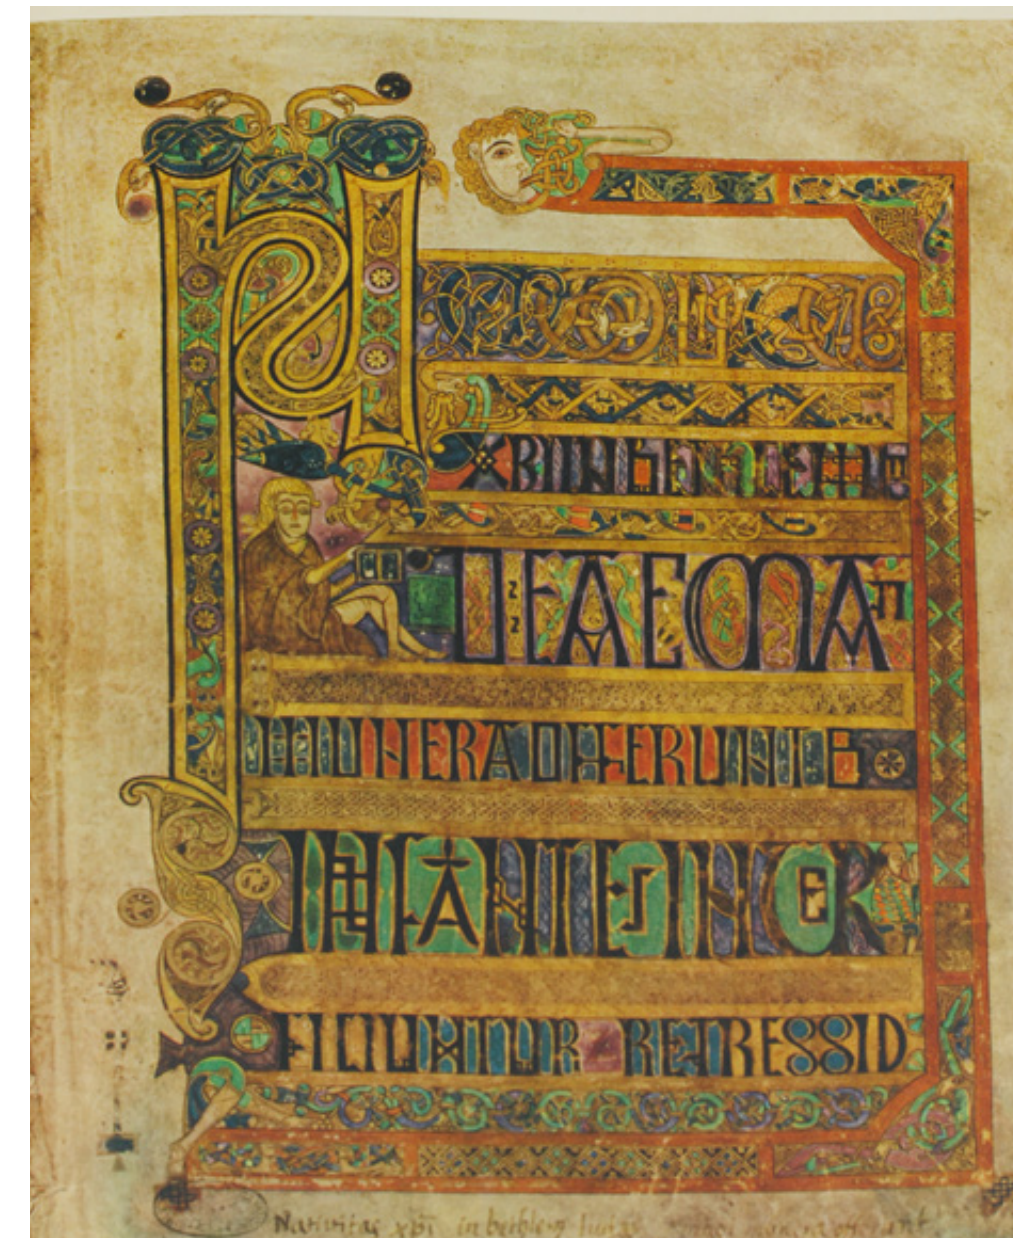 NATIUITAS
XPI IN BETHLEM
IUDEAE MA
GI MUNERA OFFERUNT ET
INFANTES INTER
FICIUNTUR REGRESSIO
Nativitas xpi in bethlem Iudae munera offerunt